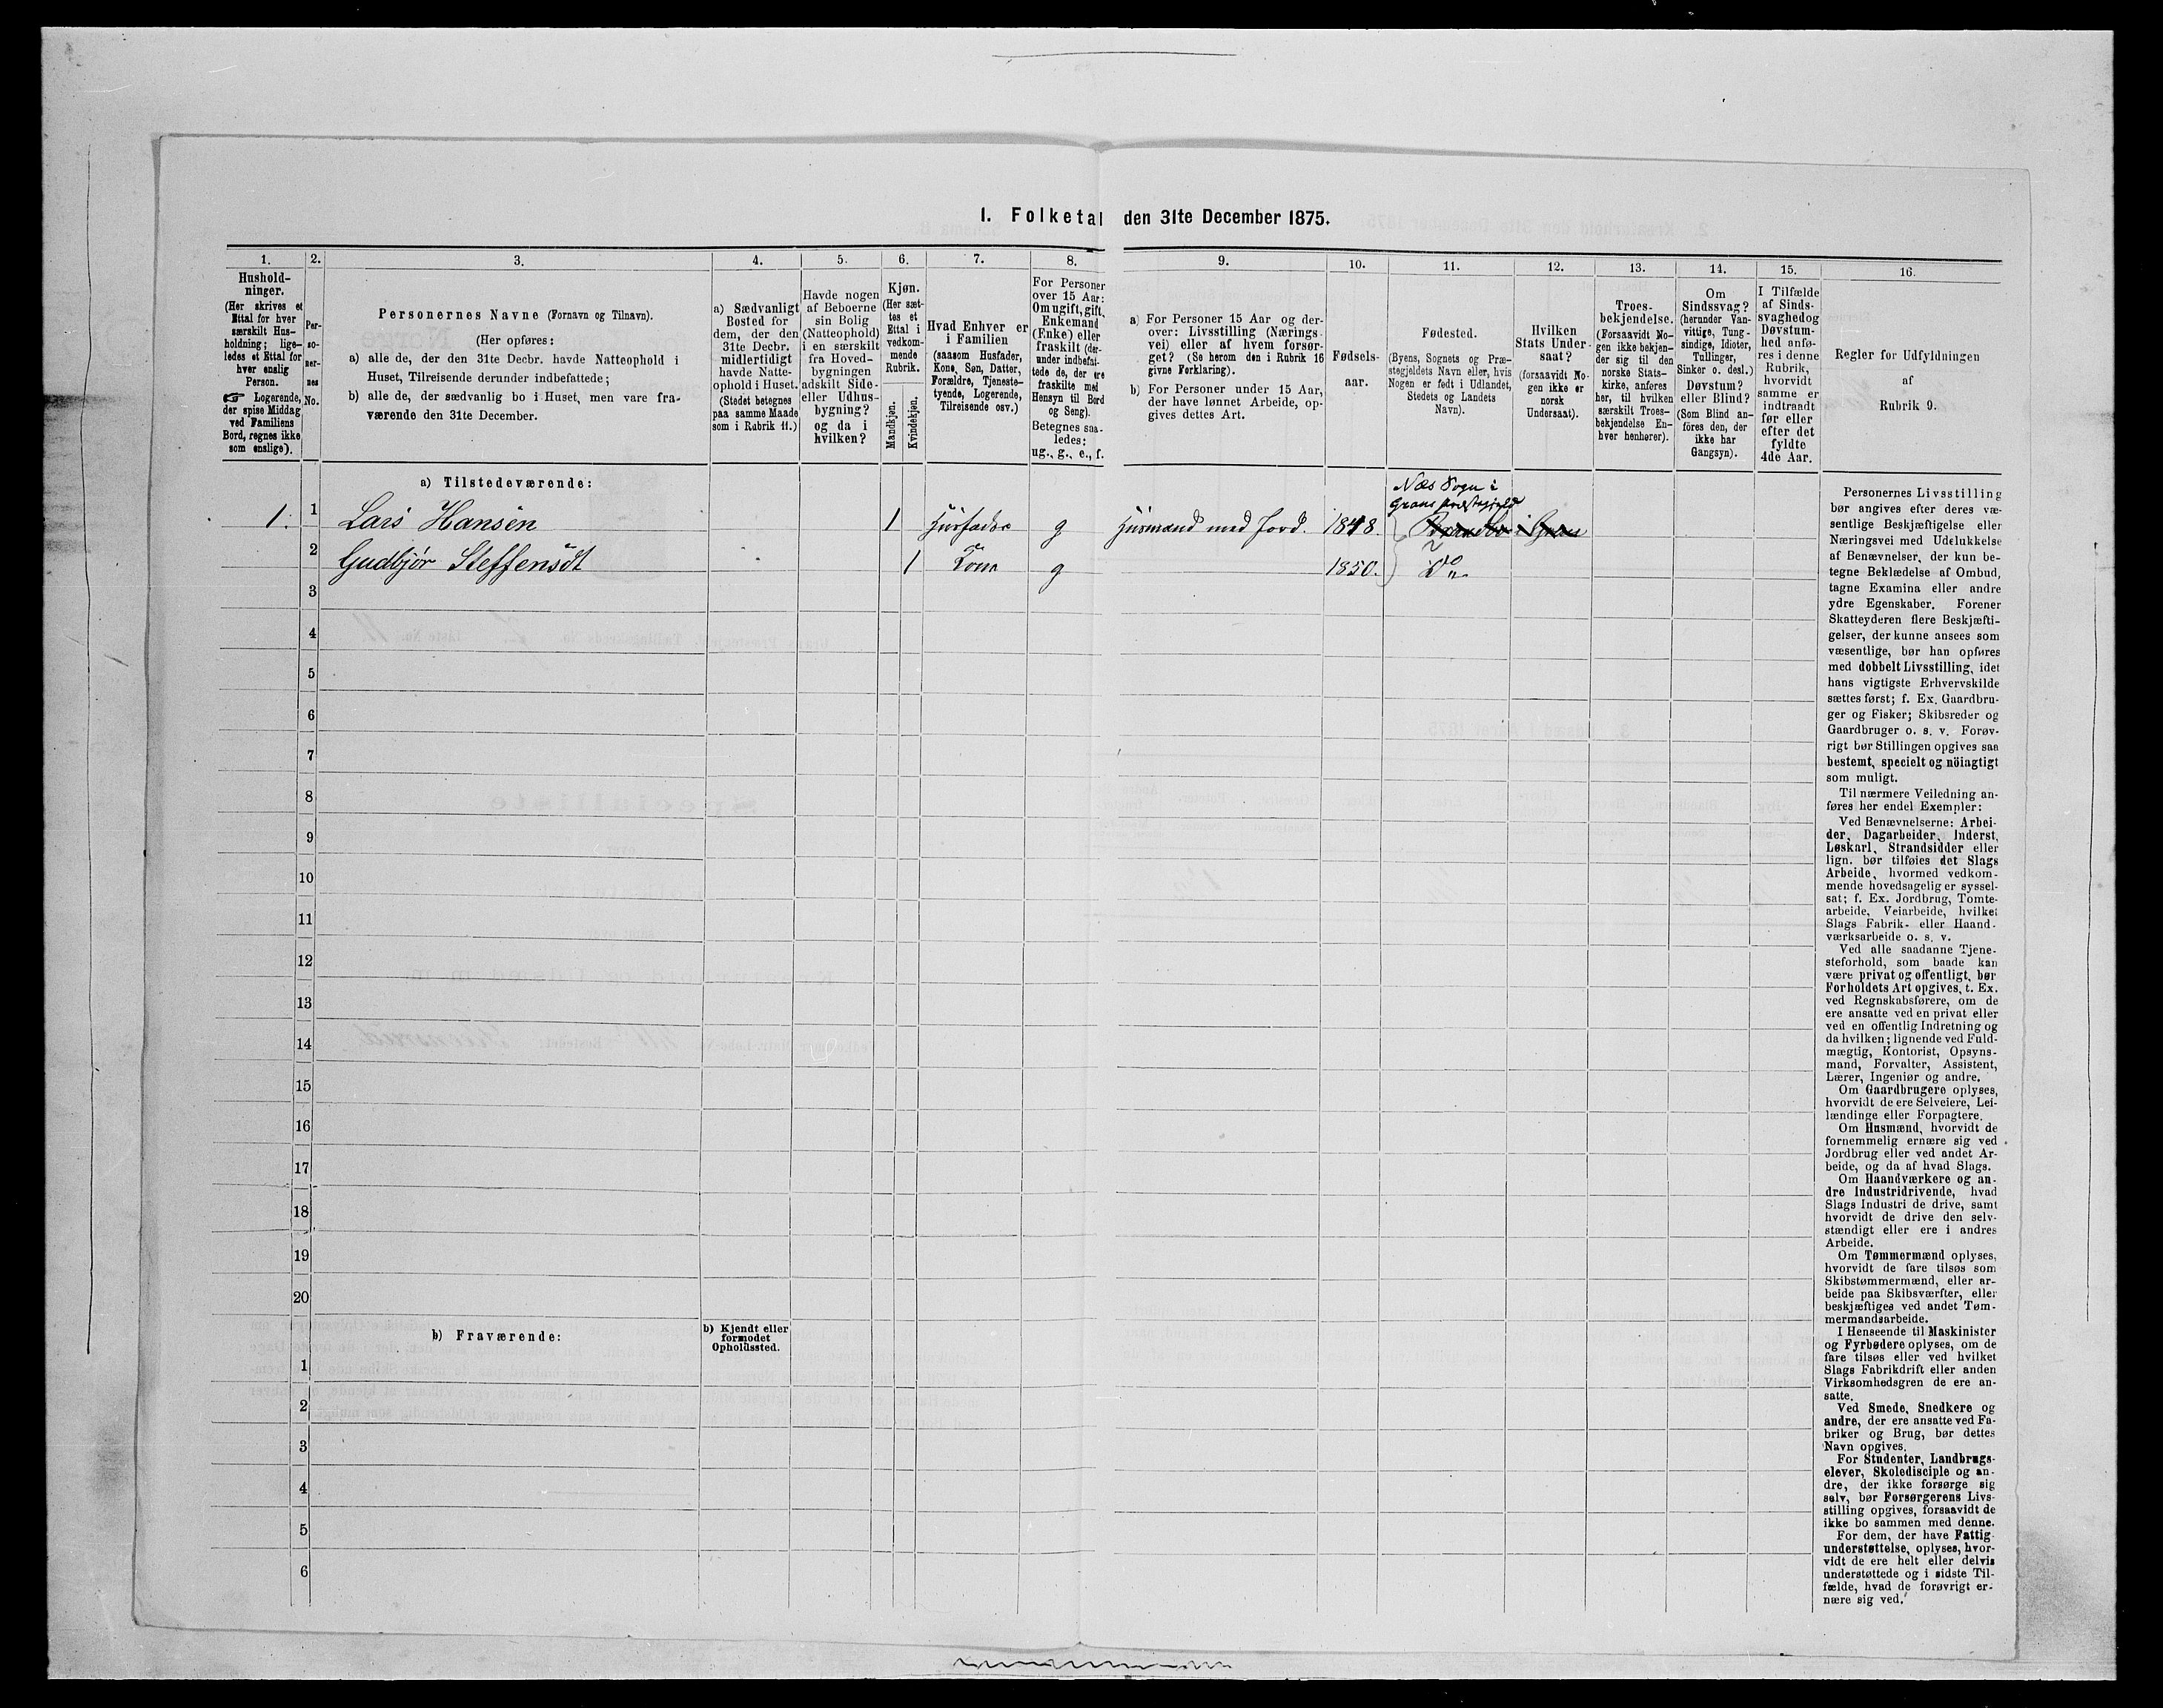 1. Folketal den 31te December 1875.
1.
Hushold-
ninger.
(Her skrives et
Ettal for hver
særskilt Hus-
holdning; lige-
ledes et Ettal for
hver enslig
Person.
☞ Logerende,
der spise Middag
ved Familiens
Bord, regnes ikke
som enslige).
2.
Per-
so-
ner-
nes
No.
3.
Personernes Navne (Fornavn og Tilnavn).
(Her opføres:
a) alle de, der den 31te Decbr. havde Natteophold i
Huset, Tilreisende derunder indbefattede;
b) alle de, der sædvanlig bo i Huset, men vare fra-
værende den 31te December.
4.
a) Sædvanligt
Bosted for
dem, der den
31te Decbr.
midlertidigt
havde Natte-
ophold i Huset.
(Stedet betegnes
paa samme Maade
som i Rubrik 11.)
5.
Havde nogen
af Beboerne
sin Bolig
(Natteophold)
i en særskilt
fra Hoved-
bygningen
adskilt Side-
eller Udhus-
bygning?
og da i
hvilken?
6.
Kjøn.
(Her sæt-
tes et
Ettal i
vedkom-
mende
Rubrik.
Mandkjøn.
Kvindekjøn.
7.
Hvad Enhver er
i Familien
(saasom Husfader,
Kone, Søn, Datter,
Forældre, Tjeneste-
tyende, Logerende,
Tilreisende osv.)
8.
For Personer
over 15 Aar:
Om ugift, gift,
Enkemand
(Enke) eller
fraskilt (der-
under indbefat-
tede de, der ere
fraskilte med
Hensyn til Bord
og Seng).
Betegnes saa-
ledes:
ug., g., e., f.
9.
a) For Personer 15 Aar og der-
over: Livsstilling (Nærings-
vei) eller af hvem forsør-
get? (Se herom den i Rubrik 16
givne Forklaring).
b) For Personer under 15 Aar,
der have lønnet Arbeide, op-
gives dettes Art.
10.
Fødsels-
aar.
11.
Fødested.
(Byens, Sognets og Præ-
stegjeldets Navn eller, hvis
Nogen er født i Udlandet,
Stedets og Landets
Navn).
12.
Hvilken
Stats Under-
saat?
(forsaavidt No-
gen ikke er
norsk
Undersaat).
13.
Troes-
bekjendelse.
(Forsaavidt No-
gen ikke bekjen-
der sig til den
norske Stats-
kirke, anføres
her, til hvilken
særskilt Troes-
bekjendelse En-
hver henhører).
14.
Om
Sindssvag?
(herunder Van-
vittige, Tung-
sindige, Idioter,
Tullinger,
Sinker o. desl.)
Døvstum?
eller Blind?
(Som Blind an-
føres den, der
ikke har
Gangsyn).
15.
I Tilfælde
af Sinds-
svaghed og
Døvstum-
hed anfø-
res i denne
Rubrik,
hvorvidt
samme er
indtraadt
før eller
efter det
fyldte
4de Aar.
16.
Regler for Udfyldningen
af
Rubrik 9.
a) Tilstedeværende:
Næs Sogn i
Grans Præstegjeld
1. 1 Lars Hansen 1 Husfader g Husmand med Jord. 1848. Brandbo i Gran
2 Gudbjør Steffensdt 1 Kone g 1850. Do
3
4
5
6
7
8
9
10
11
12
13
14
15
16
17
18
19
20
b) Fraværende:
b) Kjendt eller
formodet
Opholdssted.
1
2
3
4
5
6
Personernes Livsstilling
bør angives efter deres væ-
sentlige Beskjæftigelse eller
Næringsvei med Udelukkelse
af Benævnelser, der kun be-
tegne Beklædelse af Ombud,
tagne Examina eller andre
ydre Egenskaber. Forener
Skatteyderen flere Beskjæfti-
gelser, der kunne ansees som
væsentlige, bør han opføres
med dobbelt Livsstilling, idet
hans vigtigste Erhvervskilde
sættes først; f. Ex. Gaardbru-
ger og Fisker; Skibsreder og
Gaardbruger o. s. v. Forøv-
rigt bør Stillingen opgives saa
bestemt, specielt og nöiagtigt
som muligt.
Til nærmere Veiledning an-
føres her endel Exempler:
Ved Benævnelserne: Arbei-
der, Dagarbeider, Inderst,
Løskarl, Strandsidder eller
lign. bør tilføies det Slags
Arbeide, hvormed vedkom-
mende hovedsagelig er syssel-
sat; f. Ex. Jordbrug, Tomte-
arbeide, Veiarbeide, hvilket
Slags Fabrik- eller Haand-
værksarbeide o. s. v.
Ved alle saadanne Tjene-
steforhold, som baade kan
være privat og offentligt, bør
Forholdets Art opgives, t. Ex.
ved Regnskabsførere, om de
ere ansatte ved en privat eller
ved en offentlig Indretning og
da hvilken; lignende ved Fuld-
mægtig, Kontorist, Opsyns-
mand, Forvalter, Assistent,
Lærer, Ingeniør og andre.
Om Gaardbrugere oplyses,
hvorvidt de ere Selveiere, Lei-
lændinge eller Forpagtere.
Om Husmænd, hvorvidt de
fornemmelig ernære sig ved
Jordbrug eller ved andet Ar-
beide, og da af hvad Slags.
Om Haandværkere og an-
dre Industridrivende, hvad
Slags Industri de drive, samt
hvorvidt de drive den selv-
stændigt eller ere i andres
Arbeide.
Om Tømmermænd oplyses,
hvorvidt de fare tilsøs som
Skibstømmermænd, eller ar-
beide paa Skibsværfter, eller
beskjæftiges ved andet Tøm-
mermandsarbeide.
I Henseende til Maskinister
og Fyrbødere oplyses, om de
fare tilsøs eller ved hvilket
Slags Fabrikdrift eller anden
Virksomhedsgren de ere an-
satte.
Ved Smede, Snedkere og
andre, der ere ansatte ved Fa-
briker og Brug, bør dettes
Navn opgives.
For Studenter, Landbrugs-
elever, Skoledisciple og an-
dre, der ikke forsørge sig
selv, bør Forsørgerens Livs-
stilling opgives, forsaavidt de
ikke bo sammen med denne.
For dem, der have Fattig-
understøttelse, oplyses, hvor-
vidt de ere helt eller delvis
understøttede og i sidste Til-
fælde, hvad de forøvrigt er-
nære sig ved.